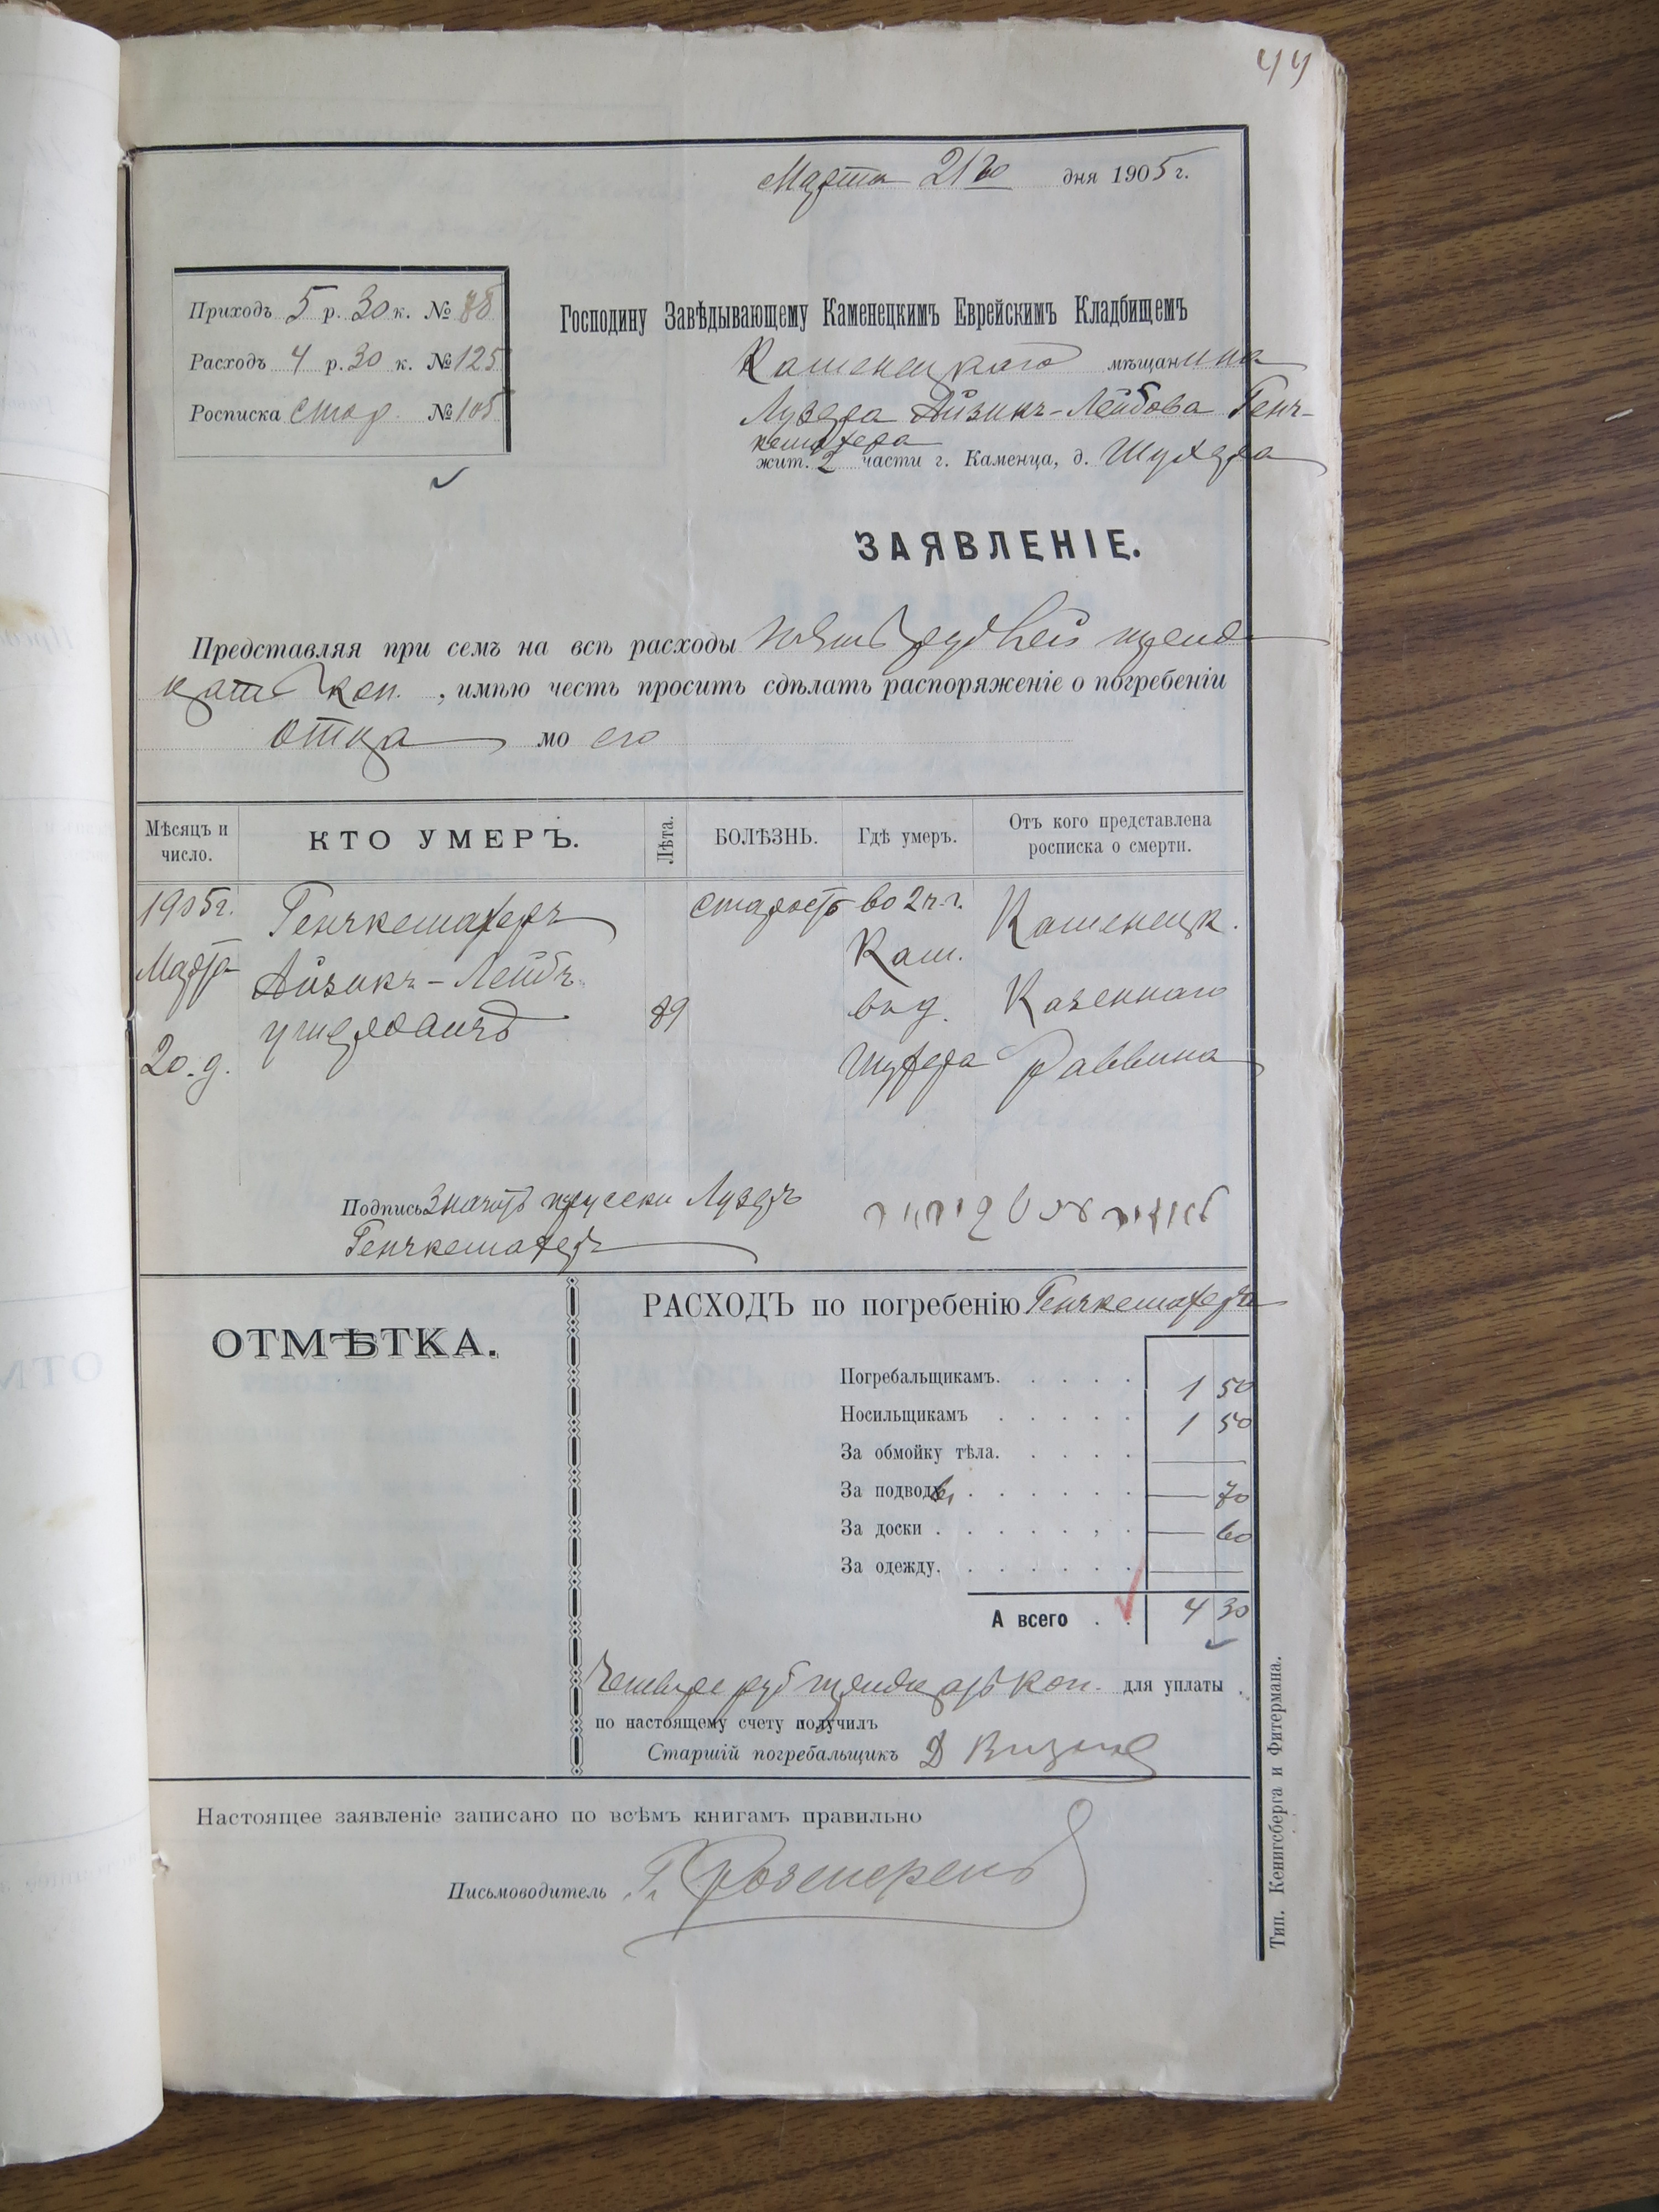 44
Марта 21го дня 1905 г.
Приходъ 5 р. 30 к. № 88
Расходъ 4 р. 30 к. № 125
Росписка стар. № 105
Господину Завѣдывающему Каменецкимъ Еврейскимъ Кладбищемъ
Каменецкаго мѣщанина
Лузера Айзикъ-Лейбова Генч-
кешахера
жит. 2 части г. Каменца, д. Шухера
ЗАЯВЛЕНІЕ.
Представляя при семъ на всѣ расходы пять рублей трид-
цать коп. , имѣю честь просить сдѣлать распоряженіе о погребеніи
отца моего
Мѣсяцъ и число. КТО УМЕРЪ. Лѣта. БОЛѢЗНЬ. Гдѣ умеръ. Отъ кого представлена росписка о смерти.
1905 г. Генчкешахеръ старость во 2 ч. г. Каменецк.
Марта Айзикъ-Лейбъ Кам. Казеннаго
20. д. 89 в д. Шухера Раввина
Подпись значитъ Лузеръ
Генчкешахеръ
ОТМѢТКА.
РАСХОДЪ по погребенію Генчкешахера
Погребальщикамъ. 1 50
Носильщикамъ 1 50
За обмойку тѣла. —
За подводы — 70
За доски — 60
За одежду. —
А всего 4 30
Четыре руб тридцать коп. для уплаты
по настоящему счету получилъ
Старшій погребальщикъ Д
Настоящее заявленіе записано по всѣмъ книгамъ правильно
Письмоводитель
Тип. Кенигсберга и Фитермана.